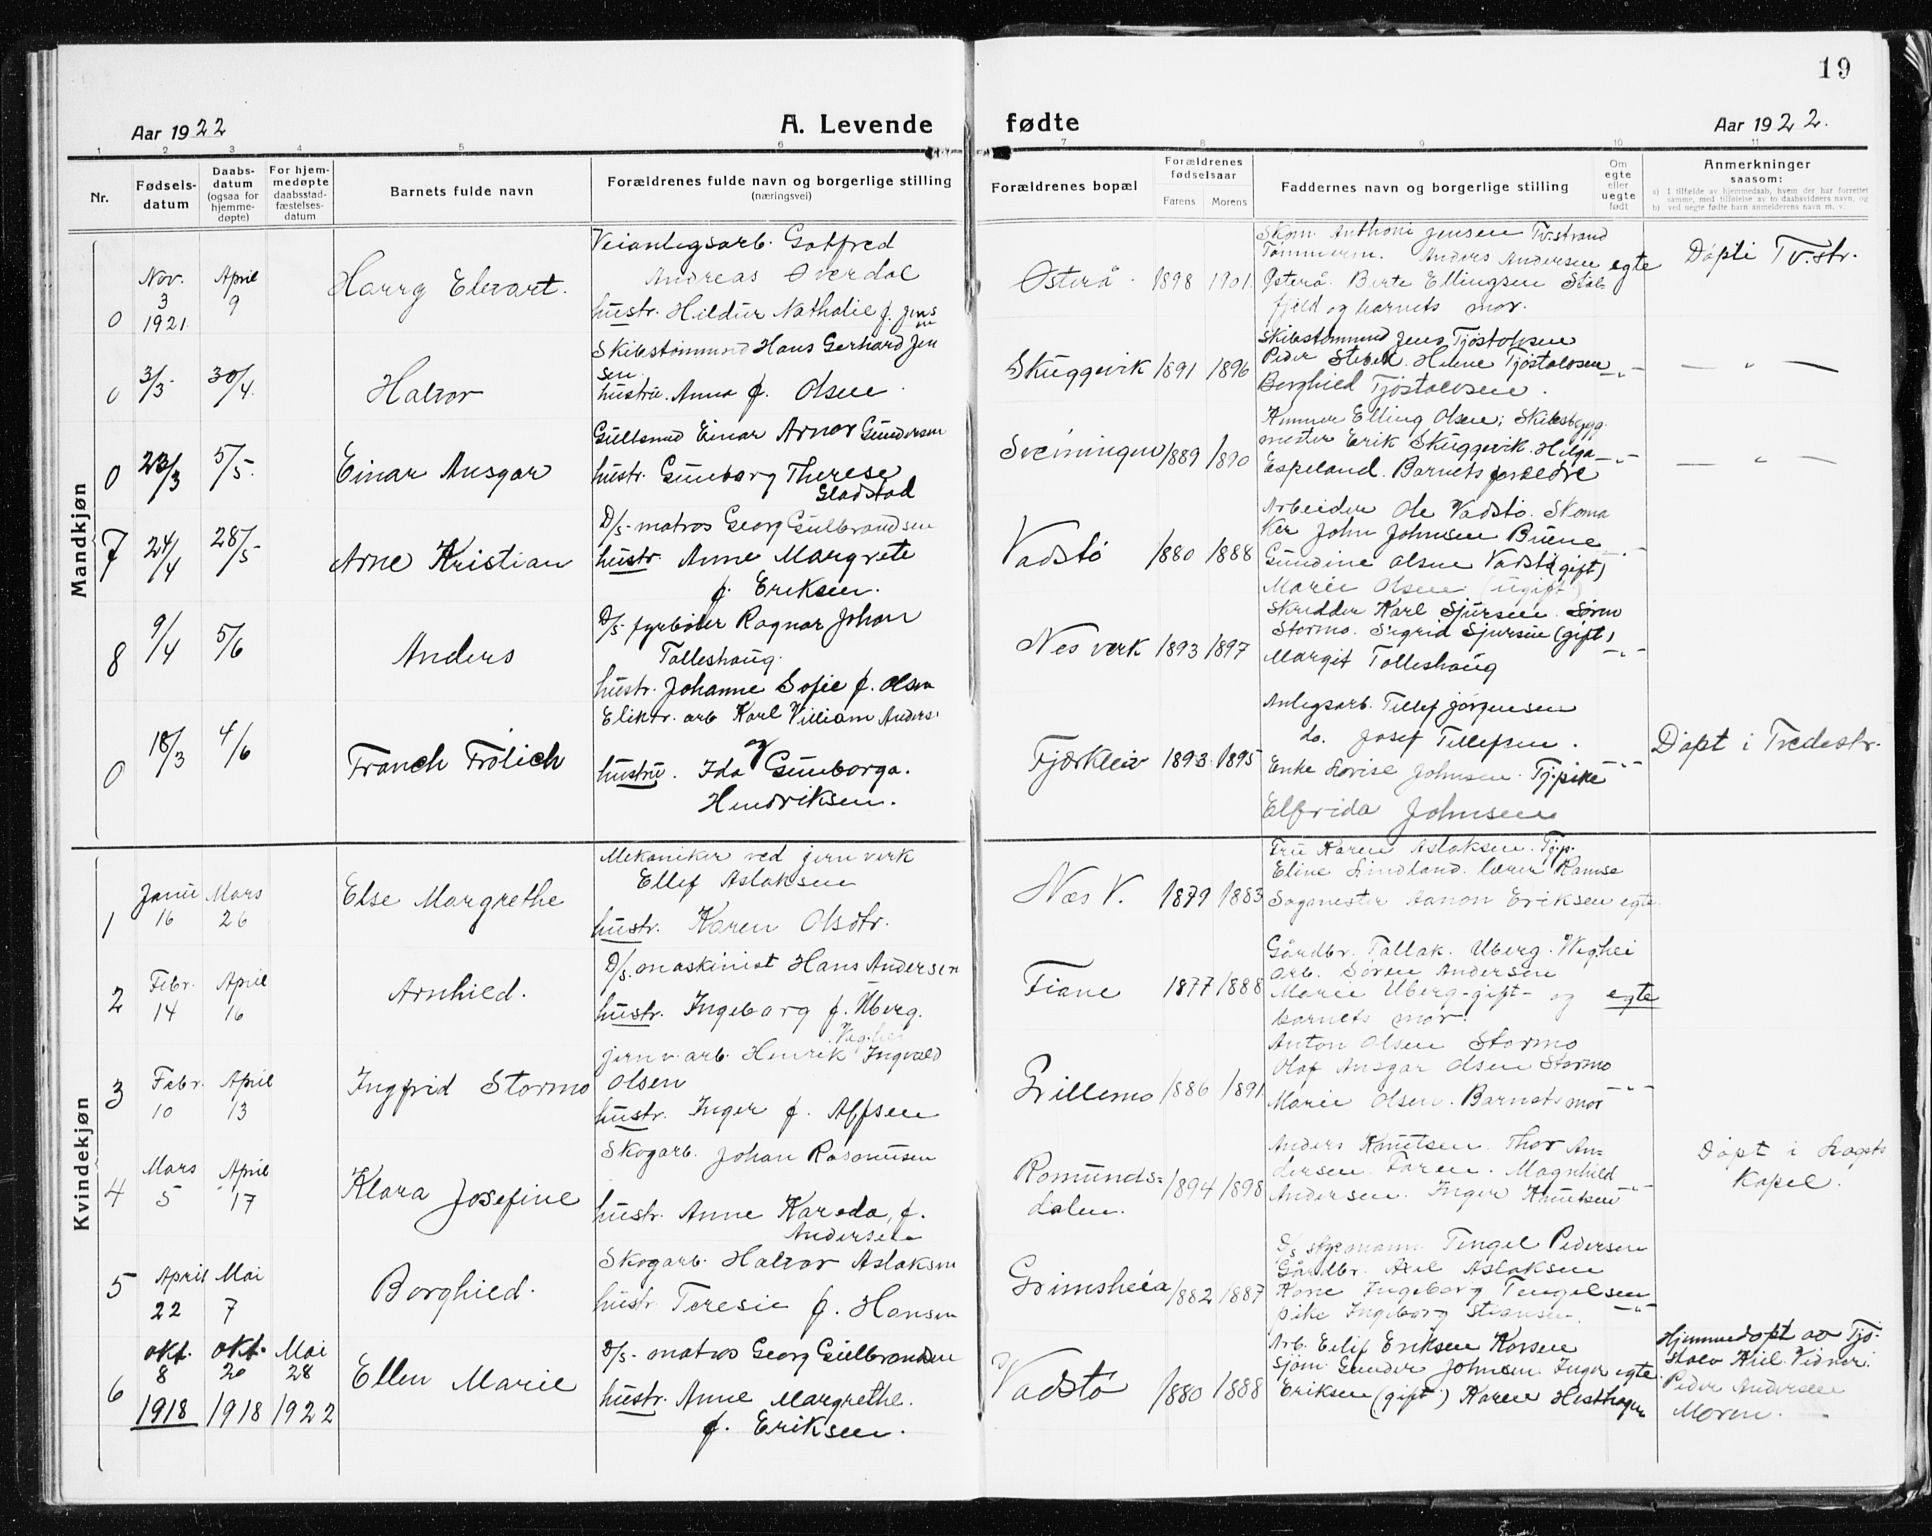 19
Aar 1922
A. Levende fødte
Aar 1922.
1 2 3 4 5 6 7 8 9 10 11
Nr.
Fødsels-
datum
Daabs-
datum
(ogsaa for
hjemme-
døpte)
For hjem-
medøpte
daabsstad-
fæstelses-
datum
Barnets fulde navn
Forældrenes fulde navn og borgerlige stilling
(næringsvei)
Forældrenes bopæl
Forældrenes
fødselsaar
Farens Morens
Faddernes navn og borgerlige stilling
Om
egte
eller
uegte
født
Anmerkninger
saasom:
a) I tilfælde av hjemmedaab, hvem der har forrettet
samme, med tilføielse av to daabsvidners navn, og
b) ved uegte fødte barn anmelderens navn m. v.
Mandkjøn
0
Nov.
3
1921
April
9
Harry Edvart.
Veianlegsarb. Gotfred
Andreas Øverdal
hustr. Hildur Nathalie f. Jens
en
Østerå. 1898 1901.
Skom. Anthoni Jensen Tv.strand
Tømmerm. Anders Andersen
Østerå. Berte Ellingsen Stab
fjeld og barnets mor.
egte
Døpt i Tv.str.
0 3/3. 30/4.
Halvor
Skibstømmm. Hans Gerhard Jen
sen.
hustru. Anna f. Olsen.
Skuggevik 1891 1896
Skibstømmm. Jens Tjøstolvsen
Peder Steben. Helene Tjøstolvsen
Borghild Tjøstolvsen.
-"-
— " —
0 23/3 5/5.
Einar Ansgar
Gullsmed Einar Arnor Gundersen
hustr. Gunborg Therese
Gladstad
Sveiningen 1889 1890
Elling Olsen; Skibsbygg
mester Erik Skuggevik. Helga
Espeland. Barnets forældre
-"-
— " —
7 24/4 28/5
Arne Kristian
D/s-matros Georg Gulbrandsen
hustr. Anne Margrete
f. Eriksen.
Vadstø 1880 1888
Arbeider Ole Vadstø. Skoma
ker John Johnsen Buene
Gundine Olsen Vadst (gift)
Marie Olsen (ugift)
-"-
8 9/4 5/6
Anders
D/s-fyrbøter Ragnar Johan
Tolleshaug.
hustr. Johanne Sofie f. Olsen
Nes verk 1893 1897
Skredder Karl Sjursen. Søren
Stormo. Sigrid Sjursen (gift)
Margit Tolleshaug
-"-
0 18/3 4/6
Franch Frölich
Elektr. arb Karl Villiam Anders.
og
hustru. Ida Gunborga.
Hendriksen.
Fjærkleiv 1893 1895
Anlegsarb. Tellef Jørgensen
do. Josef Tellefsen.
Enke Lovise Johnsen. Tj.pike
Elfrida Johnsen
-"-
Døpt i Tvedestr.
Kvindekjøn
1
Janu Mars
16 26
Else Margrethe
Mekaniker ved jernverk
Ellef Aslaksen
hustr. Karen Olsdtr.
Næs V. 1879 1883
Fru Karen Aslaksen. Tjp.
Eline Lindland. lærer Ramse
Sagmester Aanon Eriksen egte.
2
Febr. April
14 16
Arnhild.
D/s. maskinist Hans Andersen
hustr. Ingeborg f. Uberg.
Veghei
Fiane 1877 1888
Gårdbr. Tallak. Uberg. Veghei
arb. Søren Andersen
Marie Uberg-gift- og
barnets mor.
egte
3
Febr. April
10 13
Ingfrid Stormo
jernv. arb. Henrik Ingvald
Olsen
hustr. Inger f. Alfsen
Grillemo 1886 1891.
Anton Olsen Stormo
Olaf Ansgar Olsen Stormo
Marie Olsen. Barnets mor
-"-
4
Mars April
5 17
Klara Josefine
Skogarb. Johan Rasmussen
hustr. Anne Karoda, f.
Andersen
Romunds-
dalen. 1894 1898
Anders Knutsen. Thor An-
dersen. Faren. Magnhild
Andersen. Inger Knutsen
-"-
Døpt i
Kapel.
5
April Mai
22 7
Borghild.
Skogarb. Halvor Aslaksen
hustr. Teresie f. Hansen
Grimsheia 1882 1887
D/s styrmann Tengel Pedersen
Gårdbr. Axel Aslaksen
Kone Ingeborg Tengelsen
pike Ingeborg
-"-
6
okt. okt. Mai
8 20 28
1918 1918 1922
Ellen Marie
D/s- matros Georg Gulbrandsen
hustr. Anne Margrethe.
f. Eriksen.
Vadstø 1880 1888
Arb. Eilif Eriksen Korsen
Sjøm. Gunder Johnsen. Inger
Eriksen (gift) Karen Hesthagen
egte.
Hjemmedøpt av Tjø-
stolv Vidner:
Peder Andersen
Moren.